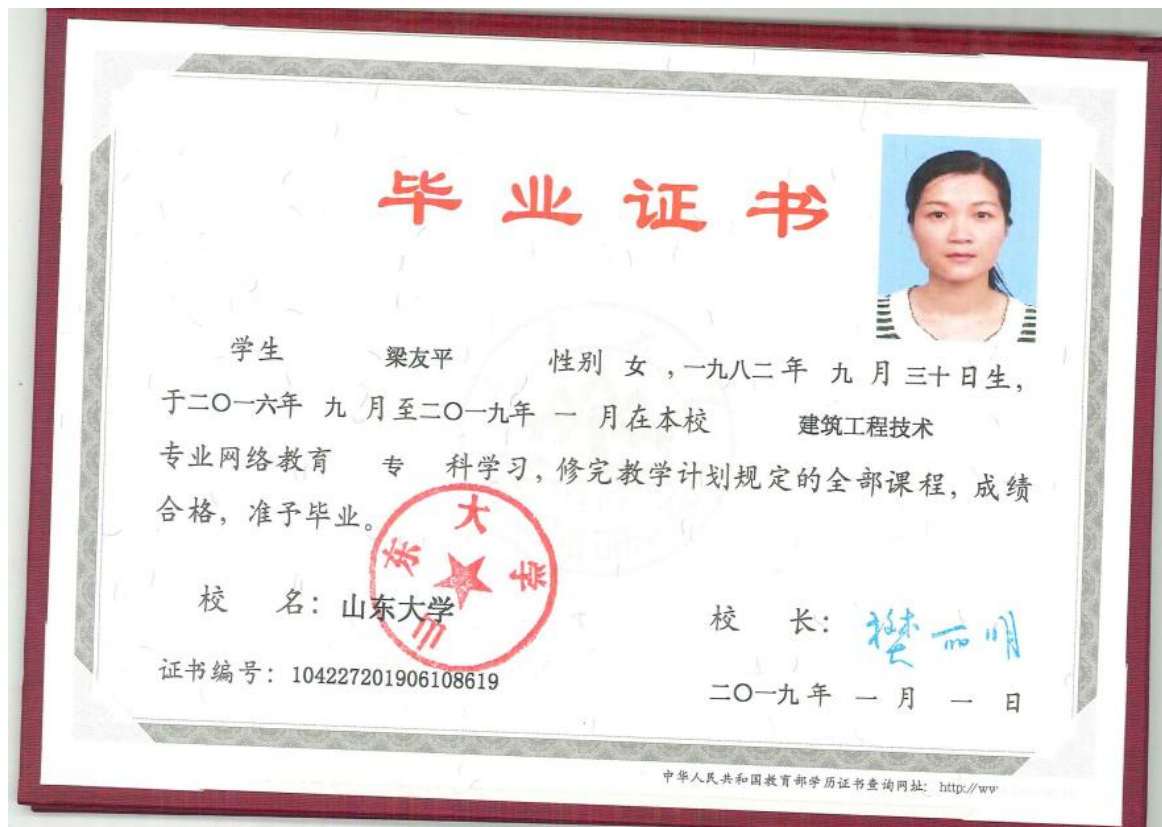 毕业证书
学生 梁友平 性别 女 ，一九八二年 九 月 三十日生，
于二〇一六年 九 月至二〇一九年 一 月在本校 建筑工程技术
专业网络教育 专 科学习，修完教学计划规定的全部课程，成绩
合格，准予毕业。
山东大学
校 名：山东大学
校 长：樊丽明
证书编号：104227201906108619
二〇一九年 一 月 一 日
中华人民共和国教育部学历证书查询网址：http://ww